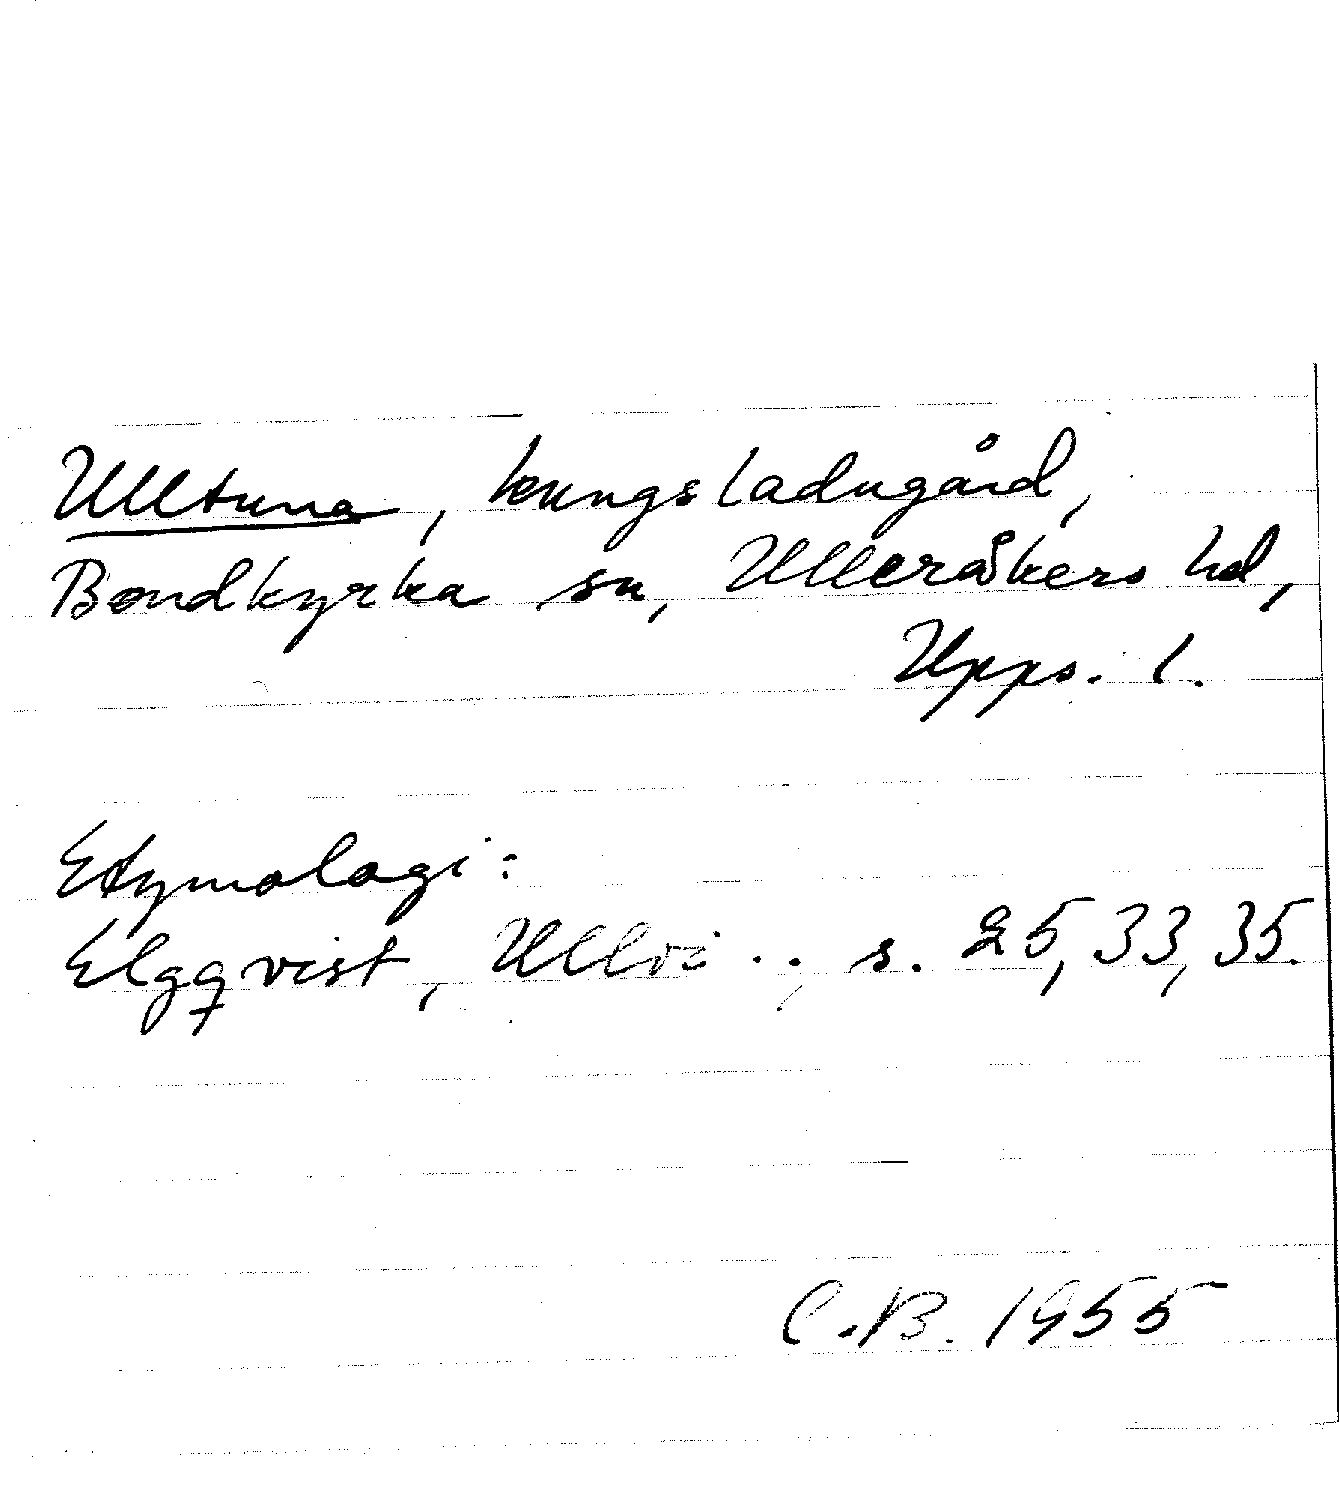 Ulltuna, kungsladugård,
Bondkyrka sn, Ulleråkers hd,
Upps. l.
Etymologi:
Elgqvist, Ullvi .., s. 25, 33, 35.
C.B. 1955